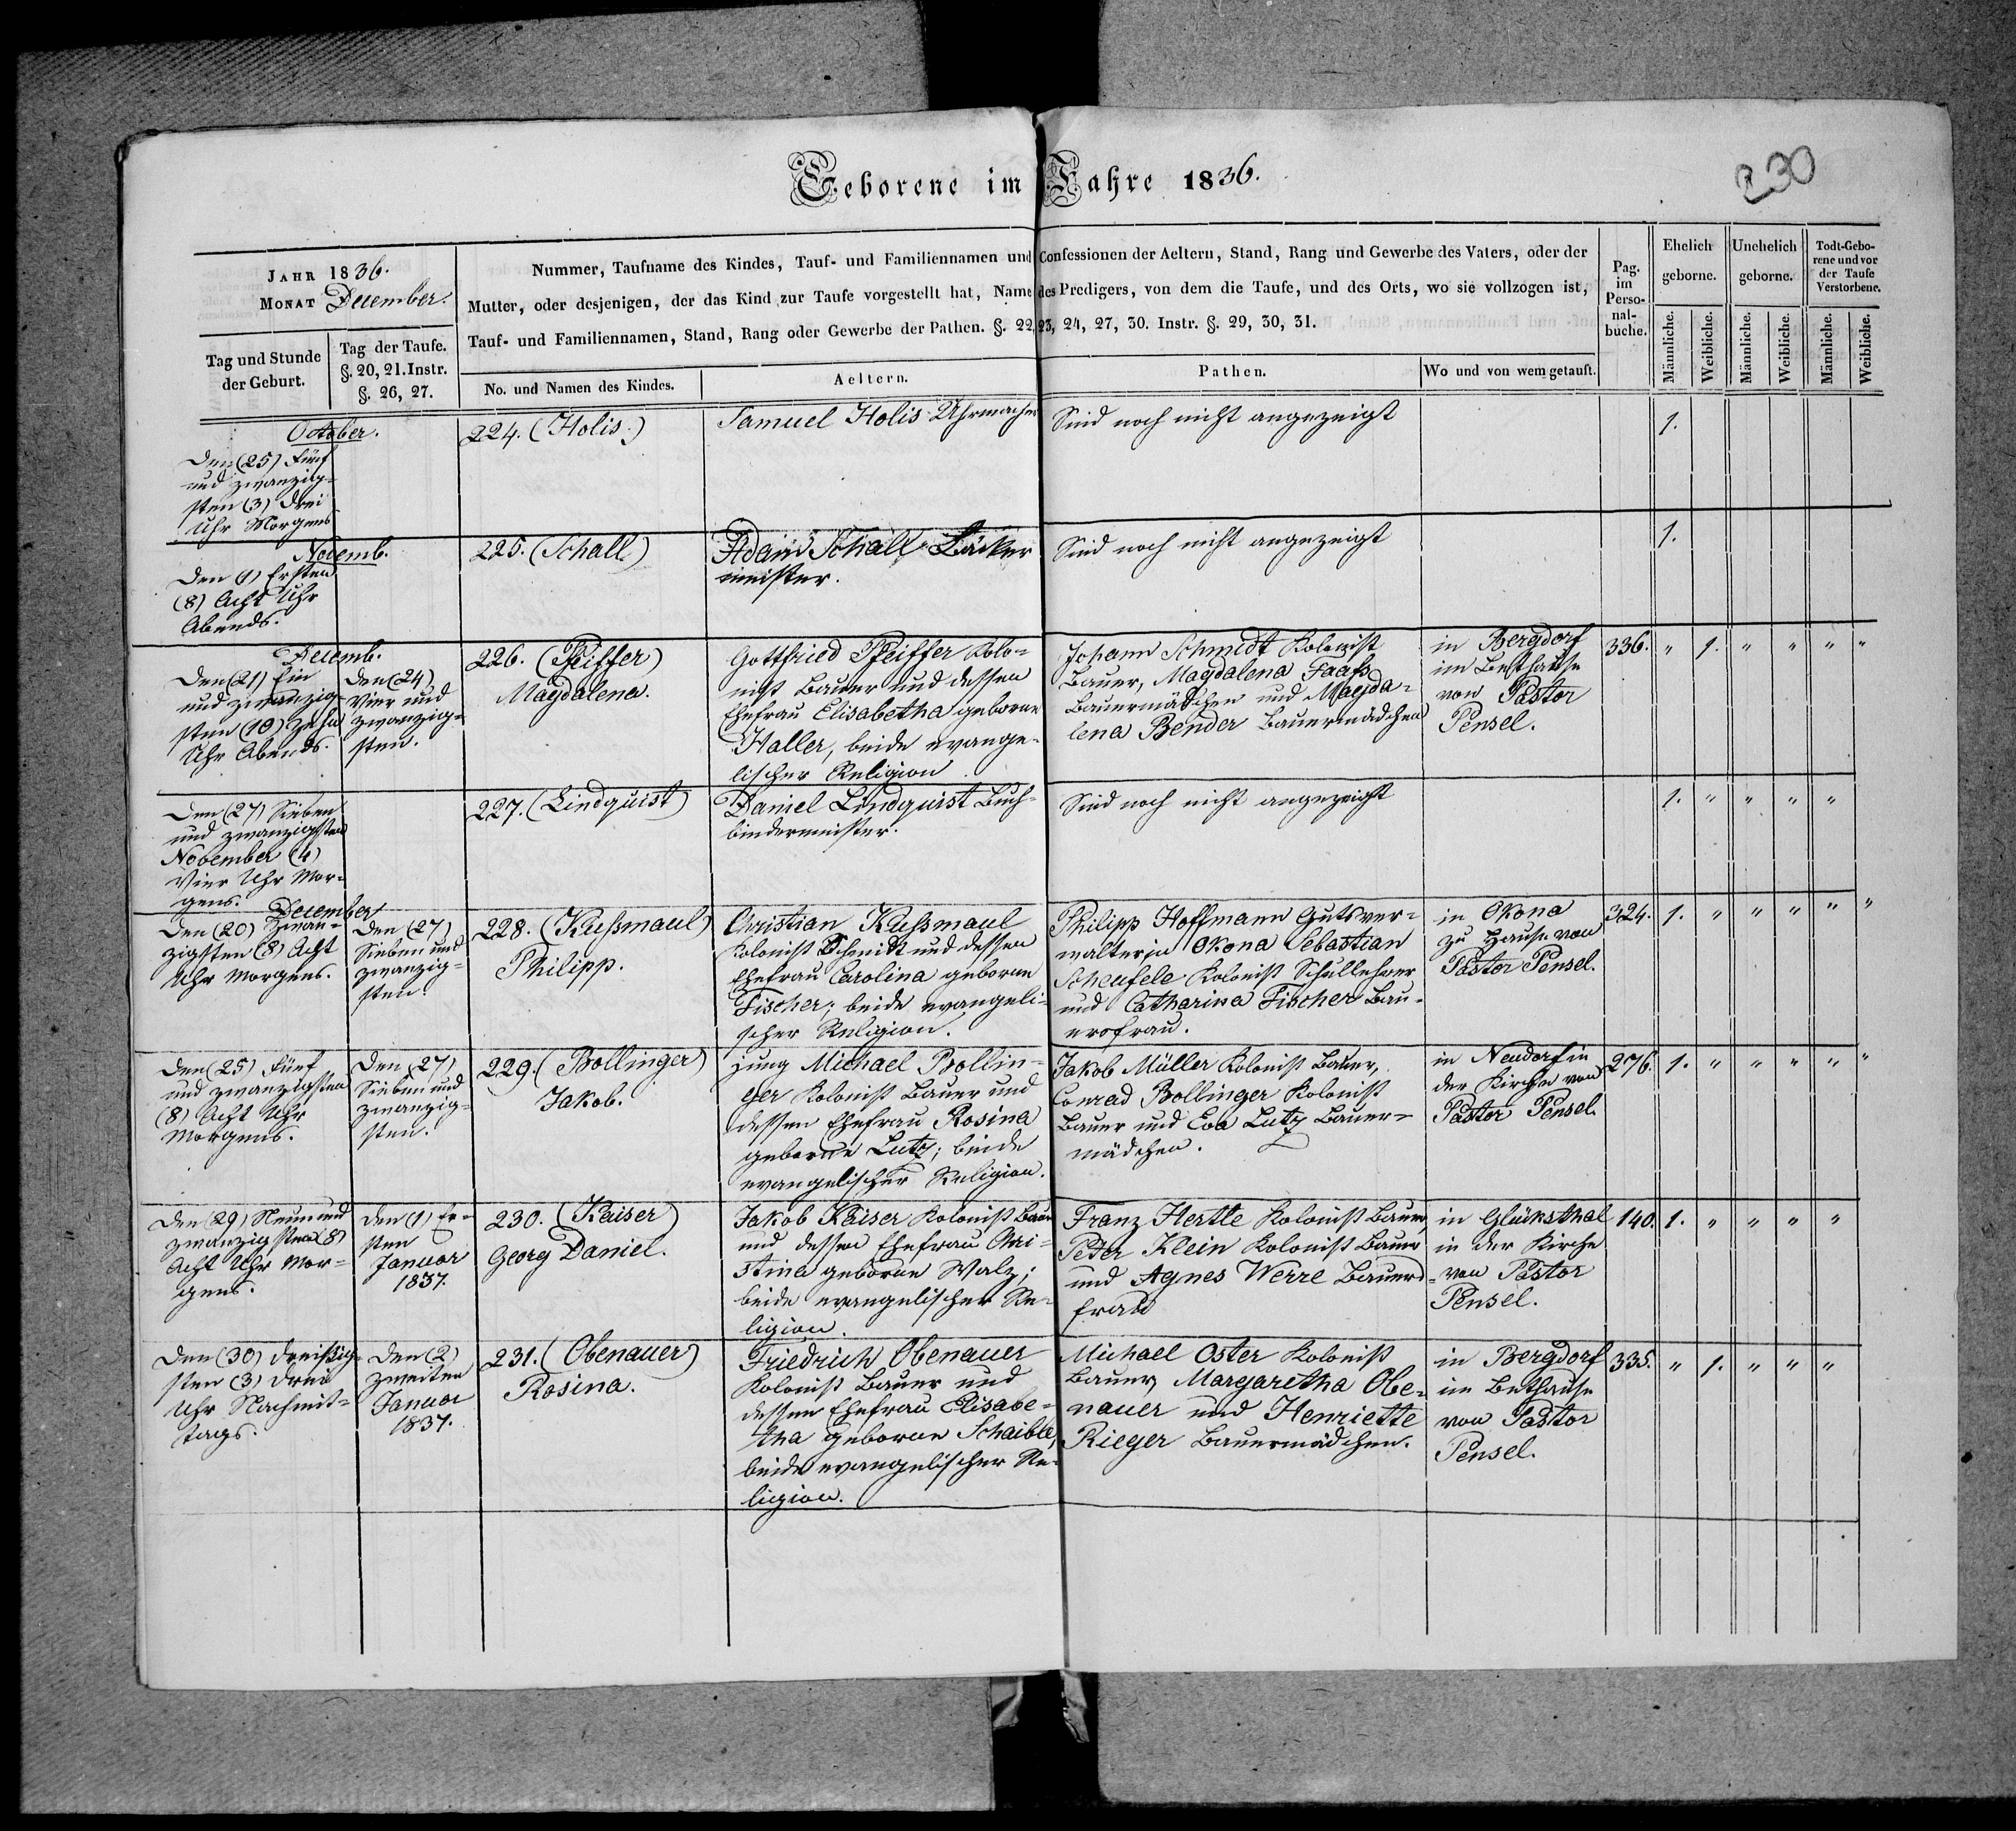 Geborene im Jahre 1836.
230
JAHR 1836.
MONAT December.
Tag und Stunde
der Geburt.
Tag der Taufe.
§. 20, 21. Instr.
§. 26, 27.
Nummer, Taufname des Kindes, Tauf- und Familiennamen und Confessionen der Aeltern, Stand, Rang und Gewerbe des Vaters, oder der
Mutter, oder desjenigen, der das Kind zur Taufe vorgestellt hat, Name des Predigers, von dem die Taufe, und des Orts, wo sie vollzogen ist,
Tauf- und Familiennamen, Stand, Rang oder Gewerbe der Pathen. §. 22, 23, 24, 27, 30. Instr. §. 29, 30, 31.
No. und Namen des Kindes.
Aeltern.
Pathen.
Wo und von wem getauft.
Pag.
im
Perso-
nal-
buche.
Ehelich
geborne.
Unehelich
geborne.
Todt-Gebo-
rene und vor
der Taufe
Verstorbene.
Männliche.
Weibliche.
Männliche.
Weibliche.
Männliche.
Weibliche.
October.
Den (25) Fünf
und zwanzig-
sten (3) drei
Uhr Morgens
224. (Holis.)
Samuel Holis Uhrmacher
Sind noch nicht angezeigt
1.
Novemb.
Den (1) Ersten
(8) Acht Uhr
Abends.
225. (Schall)
Adam Schall Bäcker
meister.
Sind noch nicht angezeigt
1.
Decemb.
Den (21) Ein
und zwanzig-
sten (10) Zehn
Uhr Abends.
Den (24)
Vier und
zwanzig-
sten.
226. (Pfeiffer)
Magdalena.
Gottfried Pfeiffer Kolo-
nist Bauer und dessen
Ehefrau Elisabetha geborne
Haller, beide evange-
lischer Religion
Johann Schmidt Kolonist
Bauer, Magdalena Faas
Bauermädchen und Magda-
lena Bender Bauermädchen
in Bergdorf
im Bethause
von Pastor
Pensel.
336. " 1. " " " "
Den (27) Sieben
und zwanzigsten
November (4)
Vier Uhr Mor-
gens.
227. (Lindquist)
Daniel Lindquist Buch-
bindermeister.
Sind noch nicht angezeigt
1. " " " "
December
Den (20) Zwan-
zigsten (8) Acht
Uhr Morgens.
Den (27)
Sieben und
zwanzig-
sten.
228. (Kußmaul)
Philipp.
Christian Kußmaul
Kolonist Schmidt und dessen
Ehefrau Carolina geborne
Fischer; beide evangeli-
scher Religion.
Philipp Hoffmann Gutsver-
walter in Okona Sebastian
Scheufele Kolonist Schullehrer
und Catharina Fischer Bau-
ersfrau.
in Okona
zu Hause von
Pastor Pensel.
324. 1. " " " " "
Den (25) Fünf
und zwanzigsten
(8) Acht Uhr
Morgens.
Den (27)
Sieben und
zwanzig-
sten.
229. (Bollinger)
Jakob.
jung Michael Bollin-
ger Kolonist Bauer und
dessen Ehefrau Rosina
geborne Lutz; beide
evangelischer Religion.
Jakob Müller Kolonist Bauer,
Conrad Bollinger Kolonist
Bauer und Eva Lutz Bauer-
mädchen.
in Neudorf in
der Kirche von
Pastor Pensel.
276. 1. " " " " "
Den (29) Neun und
zwanzigsten (8)
Acht Uhr Mor-
gens.
Den (1) Er-
sten
Januar
1837.
230. (Kaiser)
Georg Daniel.
Jakob Kaiser Kolonist Bauer
und dessen Ehefrau Chri-
stina geborne Walz;
beide evangelischer Re-
ligion.
Franz Hertle Kolonist Bauer,
Peter Klein Kolonist Bauer
und Agnes Werre Bauers-
frau
in Glücksthal
in der Kirche
von Pastor
Pensel.
140. 1. " " " "
Den (30) dreißig-
sten (3) Drei
Uhr Nachmit-
tags.
Den (2)
Zweiten
Januar
1837.
231. (Obenauer)
Rosina.
Friedrich Obenauer
Kolonist Bauer und
dessen Ehefrau Elisabe-
tha geborne Schaible,
beide evangelischer Re-
ligion.
Michael Oster Kolonist
Bauer, Margaretha Obe-
nauer und Henriette
Rieger Bauermädchen.
in Bergdorf
im Bethause
von Pastor
Pensel.
335. " 1. " " "